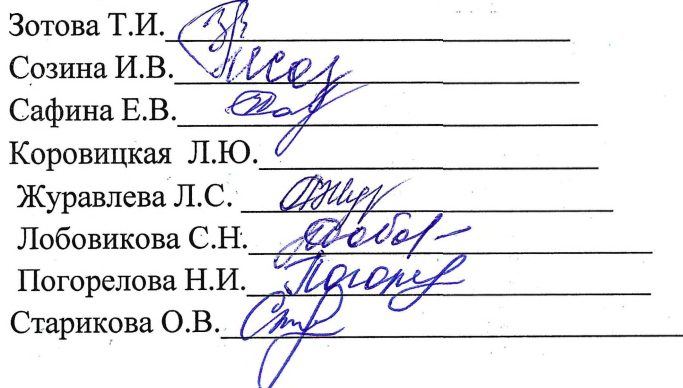 Зотова Т.И.
Созина И.В.
Сафина Е.В.
Коровицкая Л.Ю.
Журавлева Л.С.
Лобовикова С.Н.
Погорелова Н.И.
Старикова О.В.